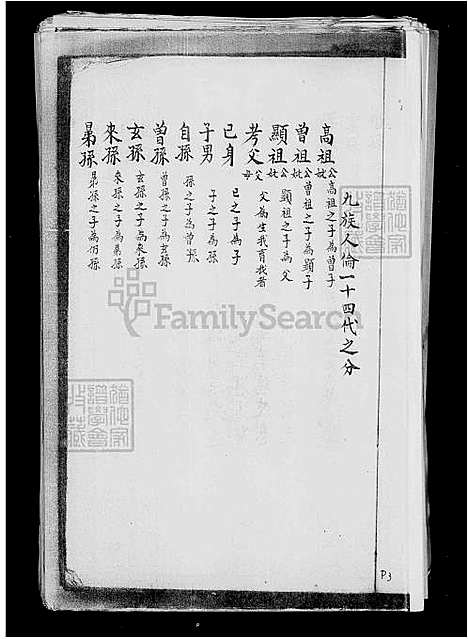 九族人倫一十四代之分
高祖公妣 高祖之子為曾子
曾祖公妣 曾祖之子為顯子
顯祖公妣 顯祖之子為父
考父父母 父為生我育我者
已身 已之子為子
子男 子之子為孫
自孫 孫之子為曾孫
曾孫 曾孫之子為玄孫
玄孫 玄孫之子為來孫
來孫 來孫之子為晜孫
晜孫 晜孫之子為仍孫
FamilySearch
P3